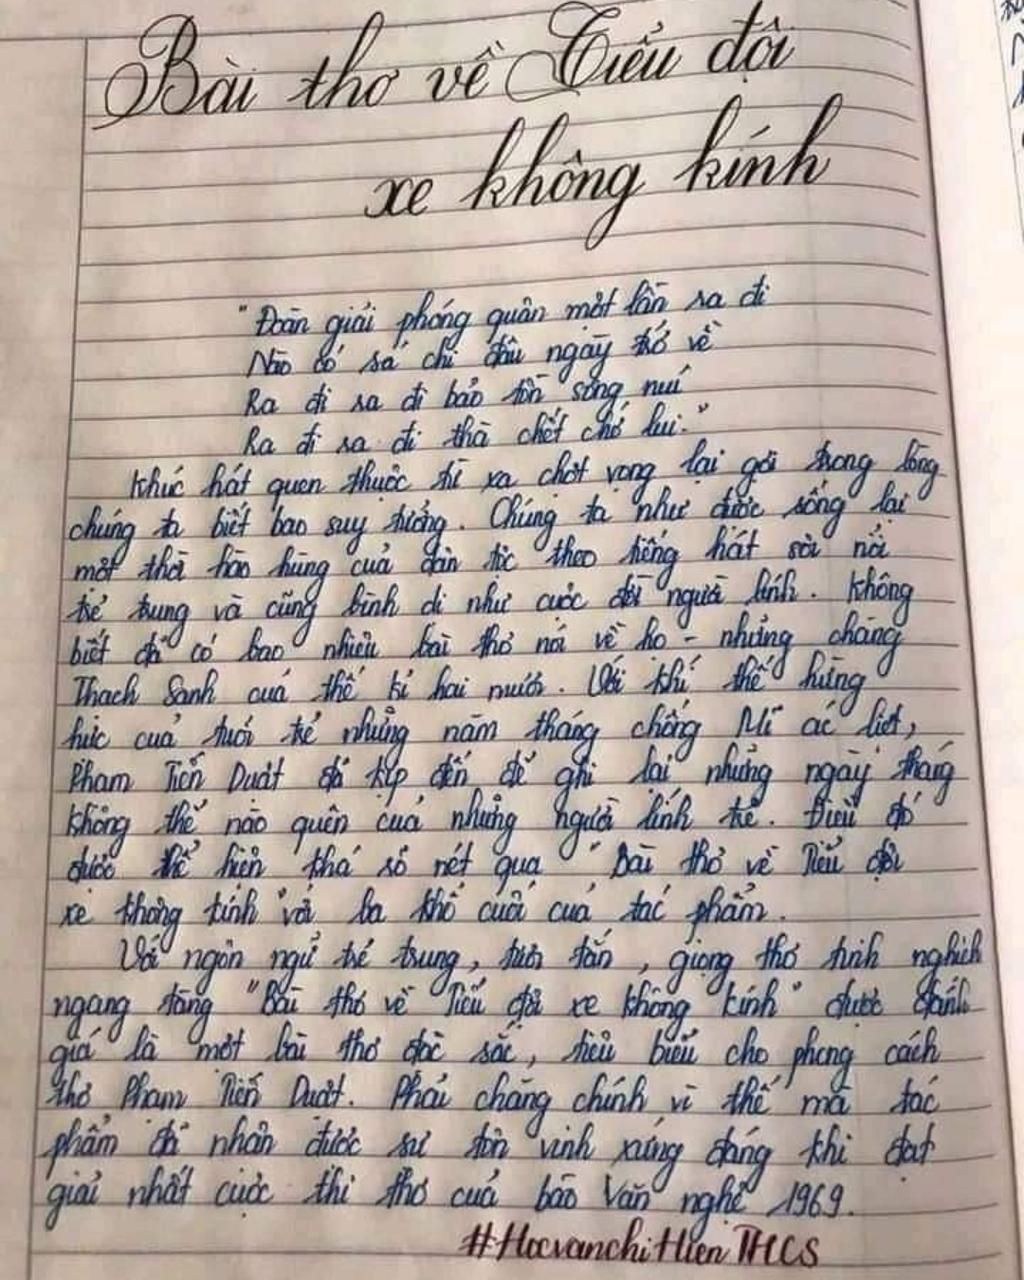 Bài thơ về Tiểu đội
xe không kính
"Đoàn giải phóng quân một lần ra đi
Nào có sá chi đâu ngày trở về
Ra đi ra đi bảo tồn sông núi
Ra đi ra đi thà chết chớ lui."
Khúc hát quen thuộc từ xa chợt vọng lại gợi trong lòng
chúng ta biết bao suy tưởng. Chúng ta như được sống lại
một thời hào hùng của dân tộc theo tiếng hát sôi nổi
trẻ trung và cũng bình dị như cuộc đời người lính. Không
biết đã có bao nhiêu bài thơ nói về họ - những chàng
Thạch Sanh của thế kỉ hai mươi. Với khí thế hừng
hực của tuổi trẻ những năm tháng chống Mĩ ác liệt,
Phạm Tiến Duật đã kịp đến để ghi lại những ngày tháng
không thể nào quên của những người lính trẻ. Điều đó
được thể hiện khá rõ nét qua "Bài thơ về Tiểu đội
xe không kính" với ba khổ cuối của tác phẩm.
Với ngôn ngữ trẻ trung, tươi tắn, giọng thơ tinh nghịch
ngang tàng "Bài thơ về Tiểu đội xe không kính" được đánh
giá là một bài thơ đặc sắc, tiêu biểu cho phong cách
thơ Phạm Tiến Duật. Phải chăng chính vì thế mà tác
phẩm đã nhận được sự tôn vinh xứng đáng khi đạt
giải nhất cuộc thi thơ của báo Văn nghệ 1969.
#HocvanchiHienTHCS